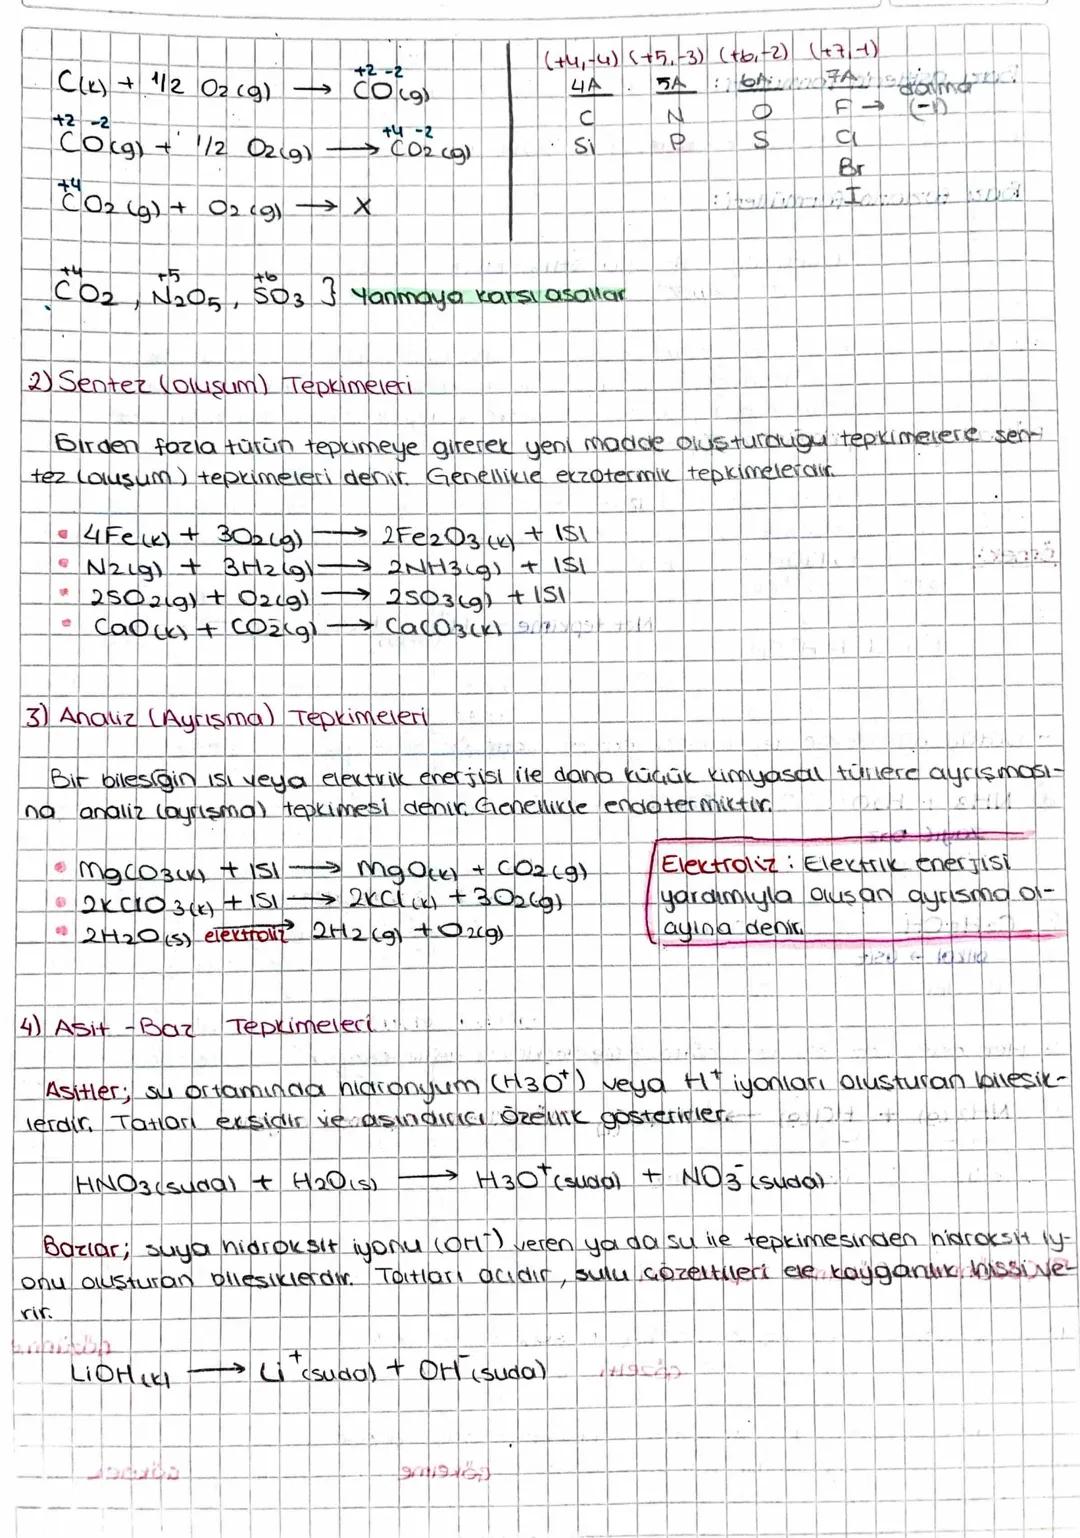 C(k) + 1/2 O2(g) → CO(g)
+2 -2
+2 -2
CO(g) + 1/2 O2(g) → CO2(g)
+4 -2
+4
CO2(g) + O2(g) → X
(+4,-4) (+5,-3) (+6,-2) (+7,-1)
4A 5A 6A 7A
C N O F → daima (-1)
Si P S Cl
Br
I
+4 +5 +6
CO2, N2O5, SO3 } Yanmaya karşı asallar
2) Sentez (oluşum) Tepkimeleri
Birden fazla türün tepkimeye girerek yeni madde oluşturduğu tepkimelere sen-
tez (oluşum) tepkimeleri denir. Genellikle ekzotermik tepkimelerdir.
• 4Fe(k) + 3O2(g) → 2Fe2O3(k) + ISI
• N2(g) + 3H2(g) → 2NH3(g) + ISI
• 2SO2(g) + O2(g) → 2SO3(g) + ISI
• CaO(k) + CO2(g) → CaCO3(k)
3) Analiz (Ayrışma) Tepkimeleri
Bir bileşiğin ısı veya elektrik enerjisi ile daha küçük kimyasal türlere ayrışması-
na analiz (ayrışma) tepkimesi denir. Genellikle endotermiktir.
• MgCO3(k) + ISI → MgO(k) + CO2(g)
• 2KClO3(k) + ISI → 2KCl(k) + 3O2(g)
• 2H2O(s) elektroliz→ 2H2(g) + O2(g)
Elektroliz : Elektrik enerjisi
yardımıyla oluşan ayrışma ol-
ayına denir.
4) Asit - Baz Tepkimeleri
Asitler; su ortamında hidronyum (H3O+) veya H+ iyonları oluşturan bileşik-
lerdir. Tatları ekşidir ve aşındırıcı özellik gösterirler.
HNO3(suda) + H2O(s) → H3O+(suda) + NO3-(suda)
Bazlar; suya hidroksit iyonu (OH-) veren ya da su ile tepkimesinden hidroksit iy-
onu oluşturan bileşiklerdir. Tatları acıdır, sulu çözeltileri ele kayganlık hissi ve-
rir.
LiOH(k) → Li+(suda) + OH-(suda)